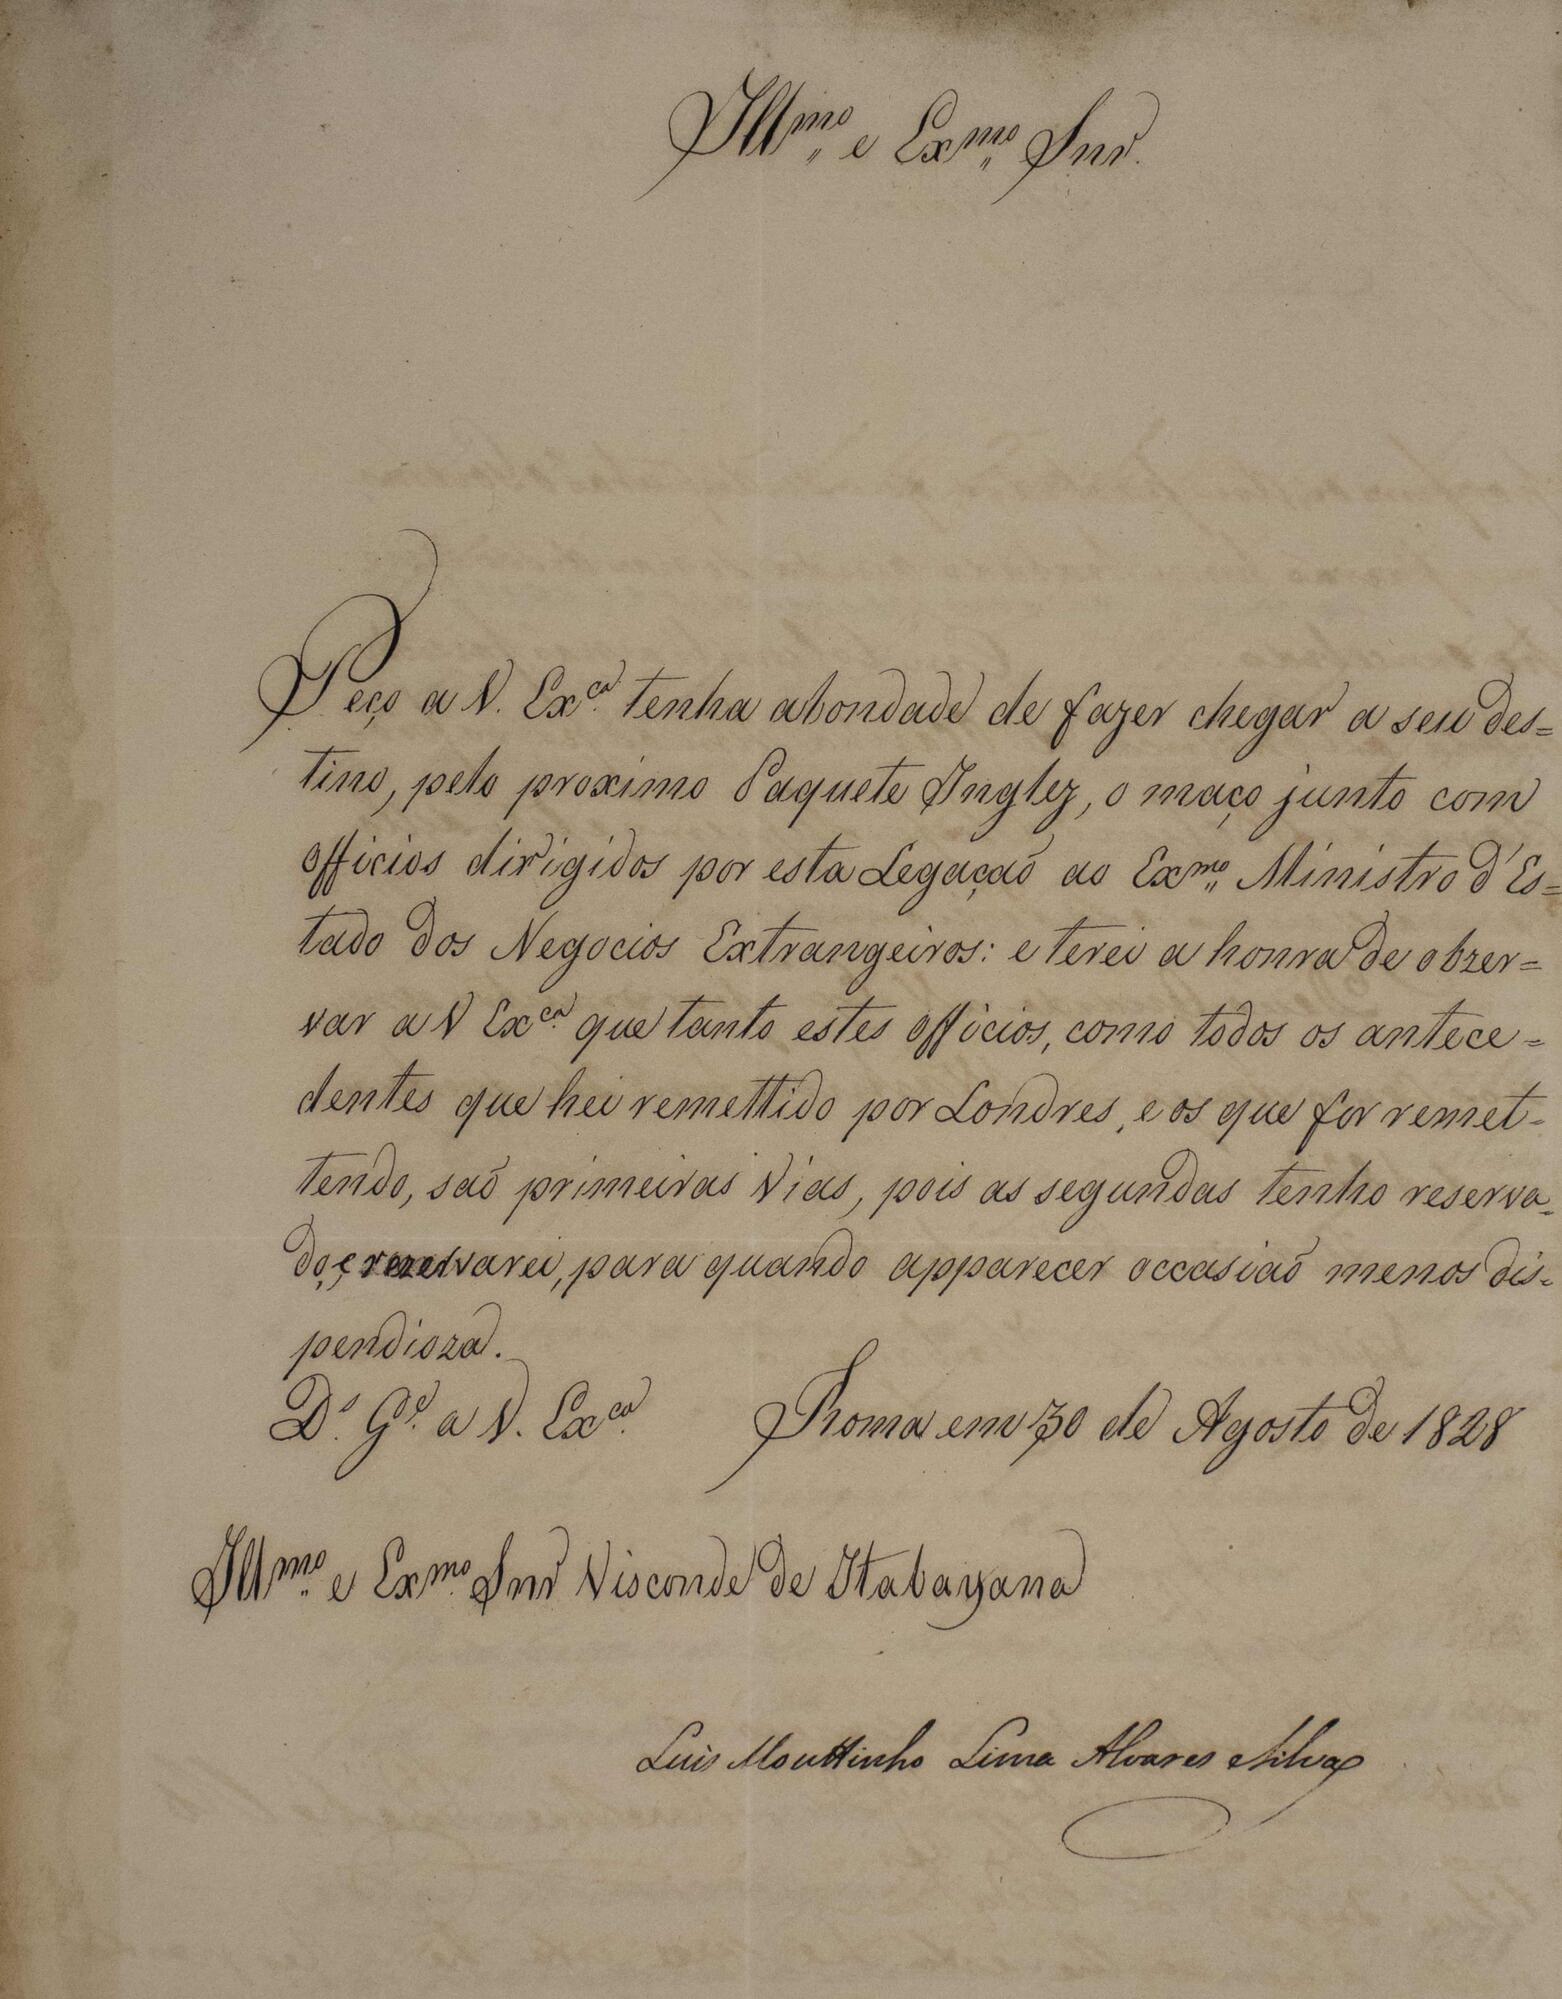 Illmo e Exmo Snr.
Peço a V. Exca. tenha abondade de fazer chegar a seu des=
tino, pelo proximo Paquete Inglez, o maço junto com
officios dirigidos por esta Legação ao Exmo Ministro d'Es=
tado dos Negocios Extrangeiros: e terei a honra de obzer=
var a V Exca. que tanto estes officios, como todos os antece=
dentes que hei remettido por Londres, e os que for remet=
tendo, saõ primeiras Vias, pois as segundas tenho reserva=
do, e rezervarei, para quando apparecer occasiaõ menos dis=
pendioza.
Ds. Gde. a V. Exca. Roma em 30 de Agosto de 1828
Illmo. e Exmo. Snr Visconde de Itabayana
Luis Mouttinho Lima Alvares eSilva